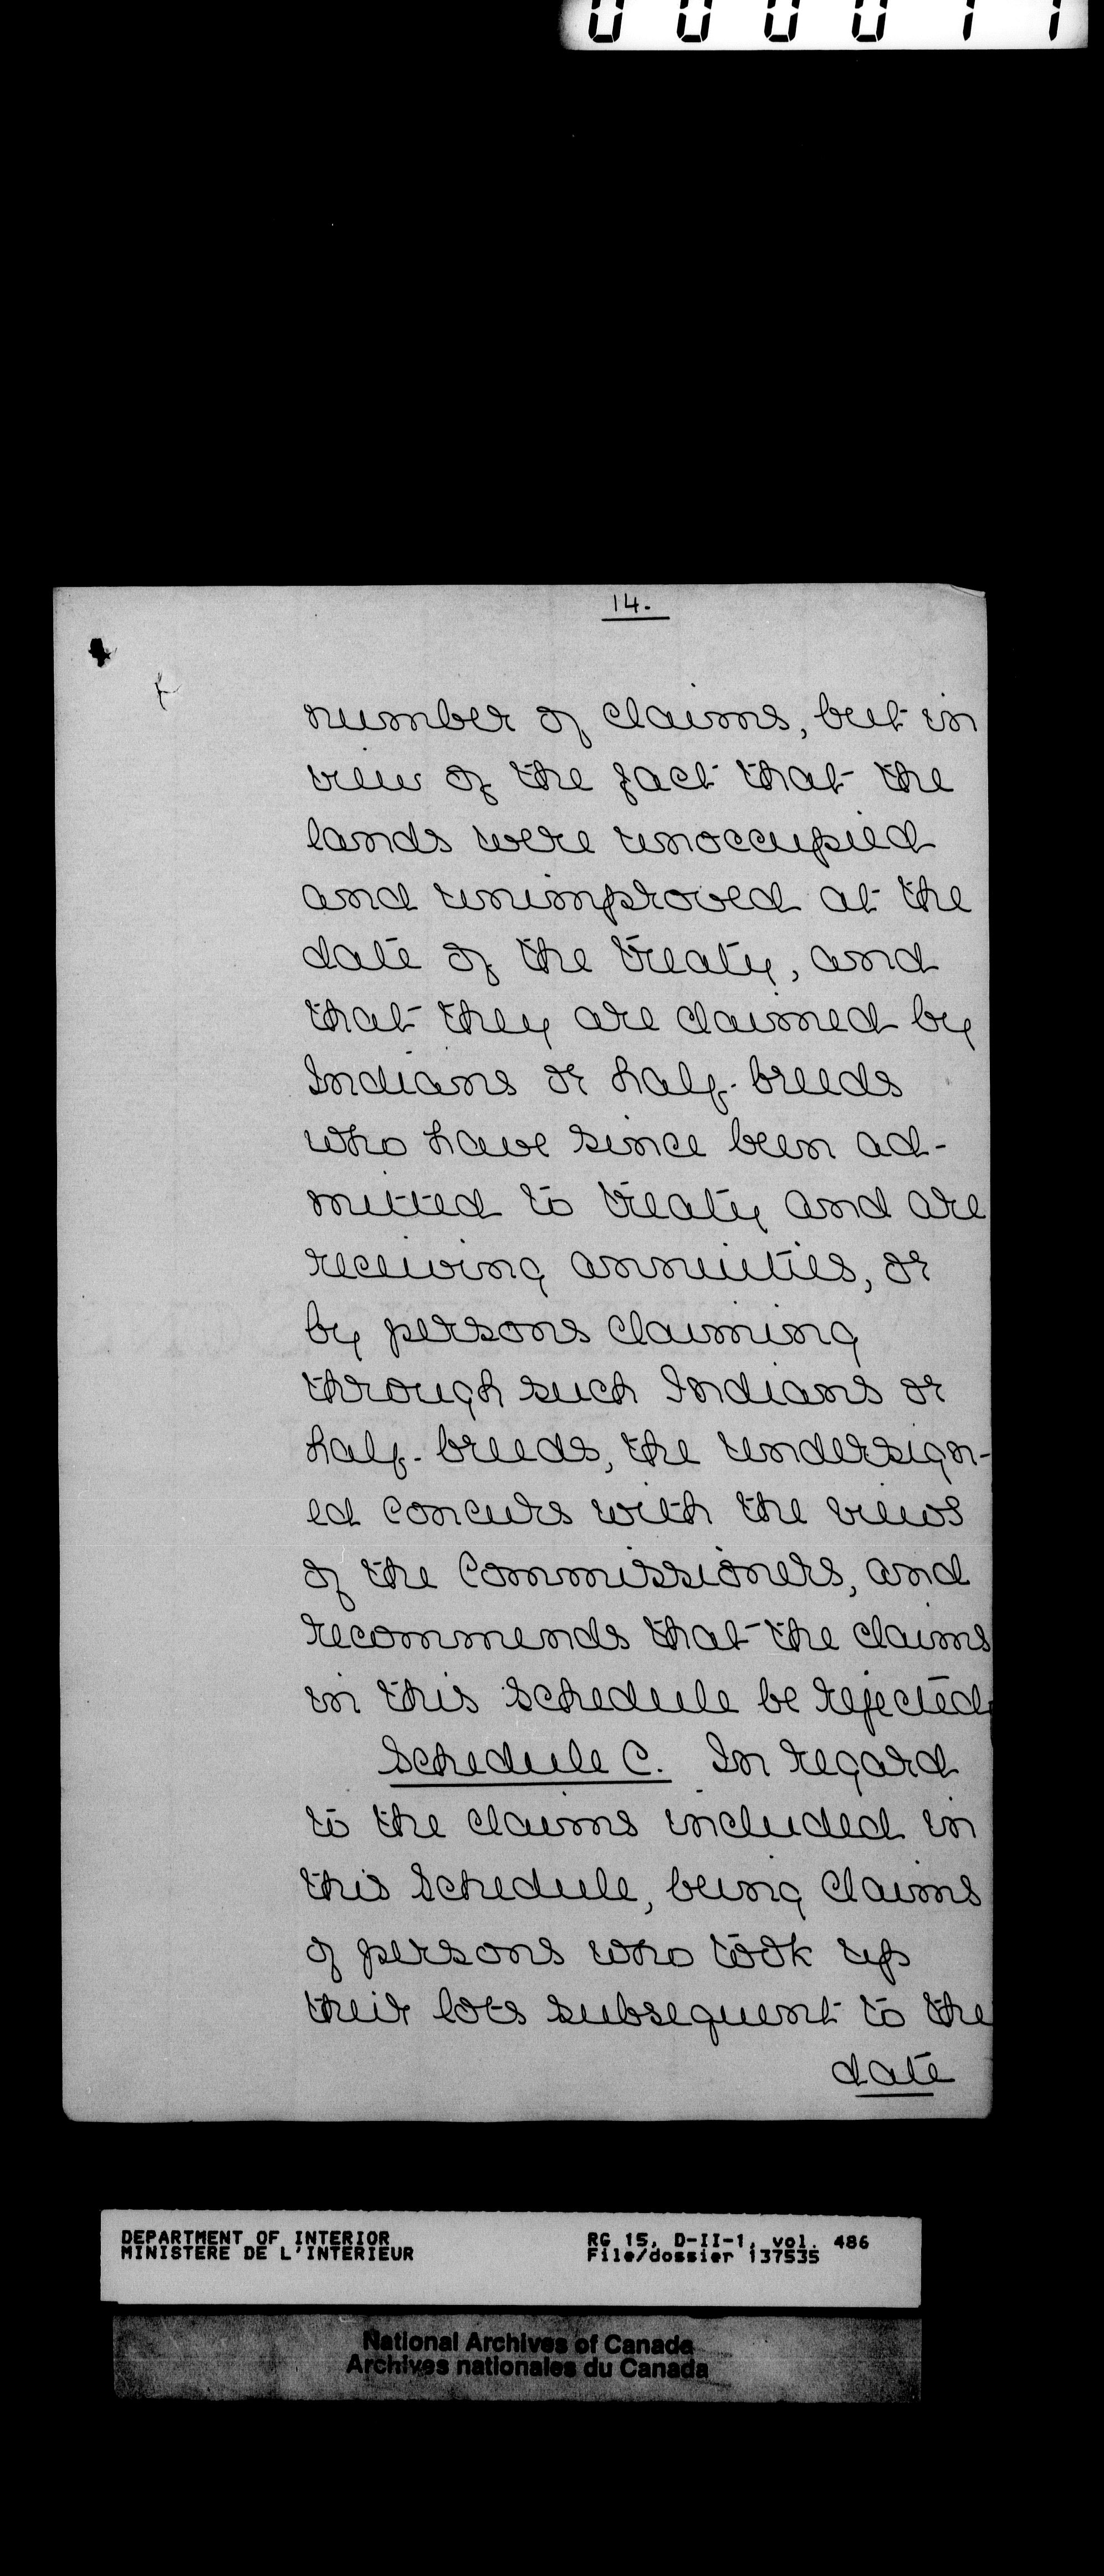 14.
number of claims, but in
view of the fact that the
lands were unoccupied
and unimproved at the
date of the treaty, and
that they are claimed by
Indians or half-breeds
who have since been ad-
mitted to treaty and are
receiving annuities, or
by persons claiming
through such Indians or
half-breeds, the undersign-
ed concurs with the views
of the Commissioners, and
recommends that the claims
in this Schedule be rejected.
Schedule C. In regard
to the claims included in
this Schedule, being claims
of persons who took up
their lots subsequent to the
date
DEPARTMENT OF INTERIOR
MINISTERE DE L'INTERIEUR
RG 15, D-II-1, vol. 486
File/dossier 137535
National Archives of Canada
Archives nationales du Canada